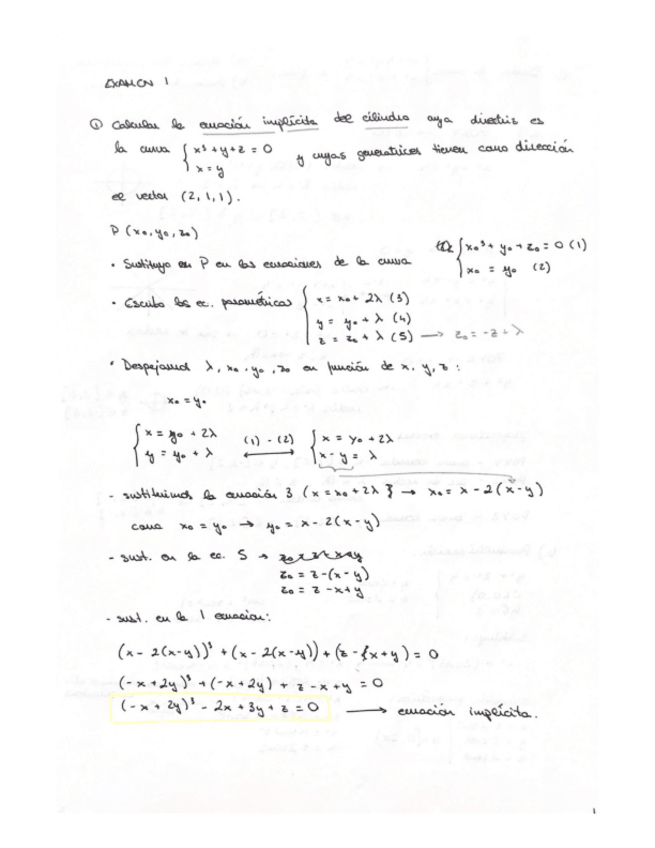 EXAMEN 1
① Calcular la ecuación implícita del cilindro cuya directriz es
la curva { x³ + y + z = 0
x = y
y cuyas generatrices tienen como dirección
el vector (2, 1, 1).
P (x₀, y₀, z₀)
• Sustituyo en P en las ecuaciones de la curva { x₀³ + y₀ + z₀ = 0 (1)
x₀ = y₀ (2)
• Escribo las ec. paramétricas { x = x₀ + 2λ (3)
y = y₀ + λ (4)
z = z₀ + λ (5) → z₀ = -z + λ
• Despejamos λ, x₀, y₀, z₀ en función de x, y, z :
x₀ = y₀
{ x = y₀ + 2λ
y = y₀ + λ
(1) - (2)
⟷
{ x = y₀ + 2λ
x - y = λ
- sustituimos la ecuación 3 ( x = x₀ + 2λ } → x₀ = x - 2(x - y)
como x₀ = y₀ → y₀ = x - 2(x - y)
- sust. en la ec. 5 →
z₀ = z - (x - y)
z₀ = z - x + y
- sust. en la 1 ecuacion:
(x - 2(x-y))³ + (x - 2(x-y)) + (z - (x + y) = 0
(-x + 2y)³ + (-x + 2y) + z - x + y = 0
(-x + 2y)³ - 2x + 3y + z = 0 → ecuación implícita.
1